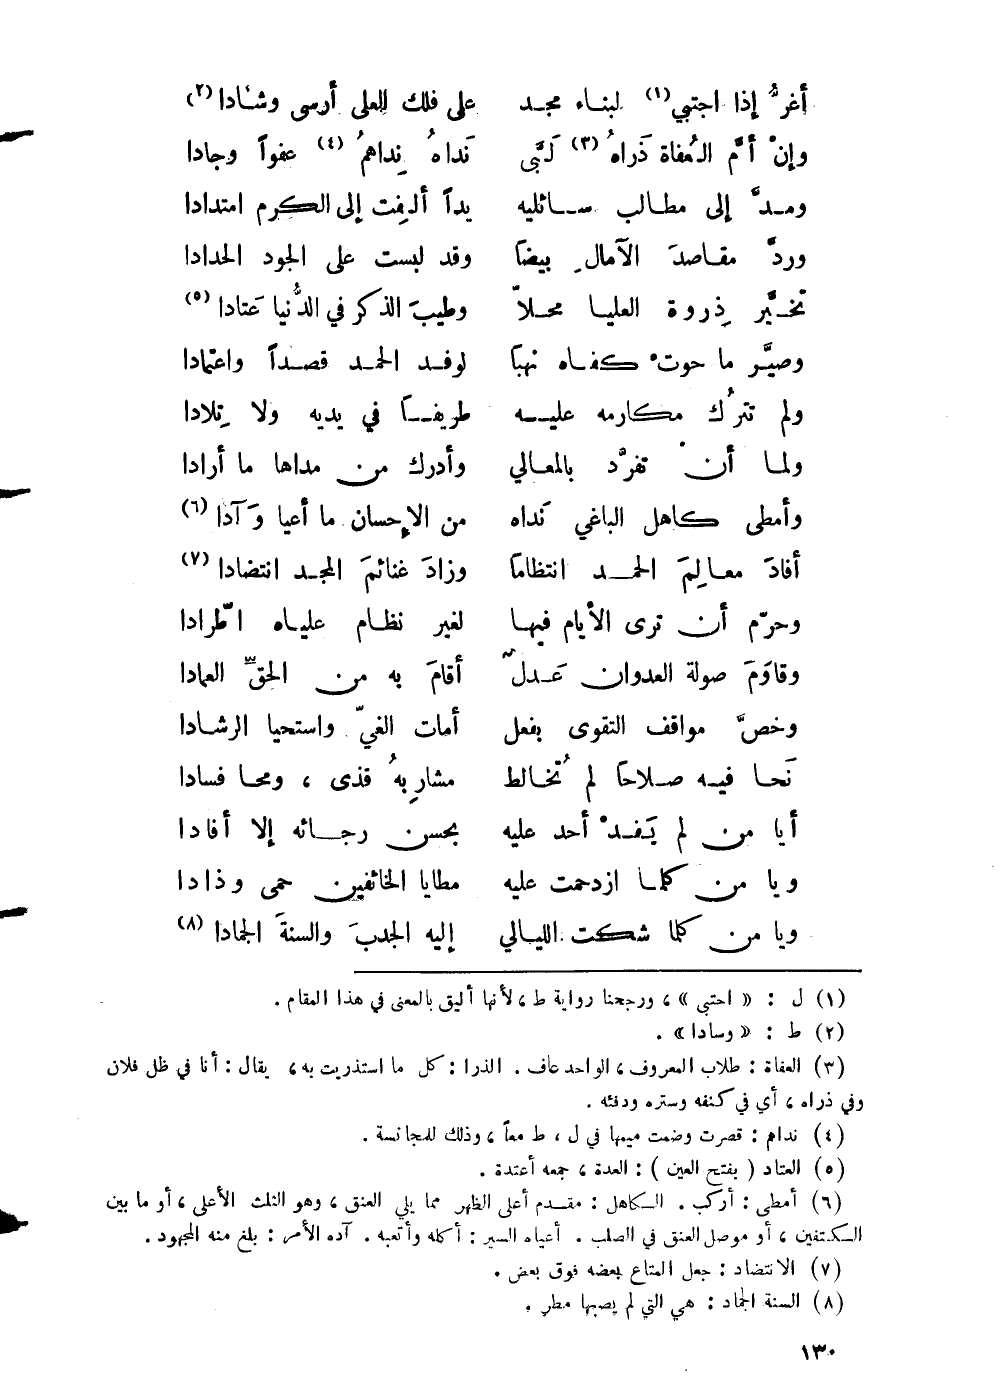 أغرُّ إذا اجتبي(١) لبناء مجد على فلك العلى أرسى وشادا(٢)
وإنْ أمَّ العُفاة ذَراهُ(٣) لَبَّى نَداهُ نِداهمُ(٤) عفواً وجادا
ومدَّ إلى مطالب سائليه يداً ألِفت إلى الكرم امتدادا
وردَّ مقاصدَ الآمالِ بيضاً وقد لبست على الجود الحدادا
تخيَّر ذِروة العليا محلاًّ وطيبَ الذكر في الدُّنيا عَتادا(٥)
وصيَّر ما حوتْ كفاه نهباً لوفد الحمد قصداً واعتمادا
ولم تترُك مكارمه عليه طريفاً في يديه ولا تِلادا
ولما أنْ تفرَّد بالمعالي وأدرك من مداها ما أرادا
وأمطى كاهل الباغي نَداه من الإحسان ما أعيا وَآدا(٦)
أفادَ معالِمَ الحمد انتظاماً وزادَ غنائمَ المجد انتضادا(٧)
وحرّم أن ترى الأيام فيها لغير نظام علياه اطّرادا
وقاوَمَ صولة العدوان عَدلٌ أقامَ به من الحقِّ العمادا
وخصَّ مواقف التقوى بفعل أمات الغيّ واستحيا الرشادا
نَحا فيه صلاحاً لم تُخالط مشاربِهُ قذى ، ومحا فسادا
أيا من لم يَفدْ أحد عليه بحسن رجائه إلا أفادا
ويا من كلما ازدحمت عليه مطايا الخائفين حمى وذادا
ويا من كلما شكت الليالي إليه الجدبَ والسنةَ الجمادا(٨)
(١) ل : « احتبي » ، ورجحنا رواية ط ، لأنها أليق بالمعنى في هذا المقام .
(٢) ط : « وسادا » .
(٣) العفاة : طلاب المعروف ، الواحد عاف . الذرا : كل ما استذريت به ، يقال : أنا في ظل فلان
وفي ذراه ، أي في كنفه وستره ودفئه .
(٤) نداهم : قصرت وضمت ميمها في ل ، ط معاً ، وذلك للمجانسة .
(٥) العتاد ( بفتح العين ) : العدة ، جمعه أعتدة .
(٦) أمطى : أركب . الكاهل : مقدم أعلى الظهر مما يلي العنق ، وهو الثلث الأعلى ، أو ما بين
الكتفين ، أو موصل العنق في الصلب . أعياه السير : أكله وأتعبه . آده الأمر : بلغ منه المجهود .
(٧) الانتضاد : جعل المتاع بعضه فوق بعض .
(٨) السنة الجماد : هي التي لم يصبها مطر .
١٣٠